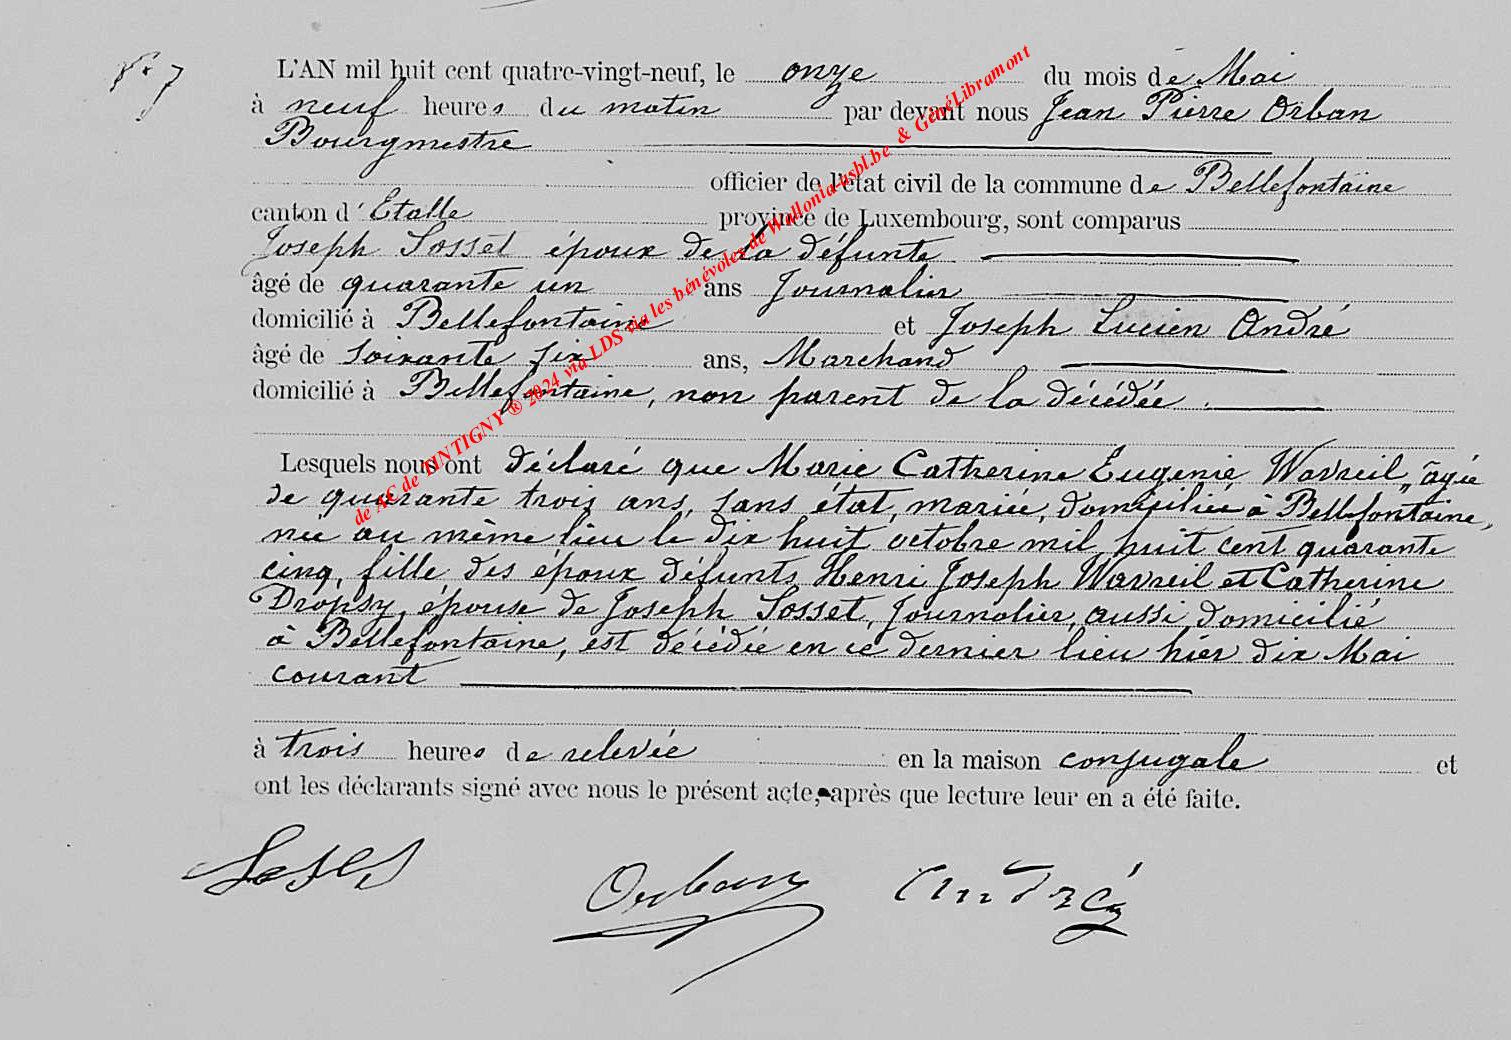 N° 7
L'AN mil huit cent quatre-vingt-neuf, le onze du mois de Mai
à neuf heures du matin par devant nous Jean Pierre Orban
Bourgmestre
officier de l'état civil de la commune de Bellefontaine
canton d'Etalle province de Luxembourg, sont comparus
Joseph Sosset époux de la défunte
âgé de quarante un ans Journalier
domicilié à Bellefontaine et Joseph Lucien André
âgé de soixante six ans, Marchand
domicilié à Bellefontaine, non parent de la décédée.
Lesquels nous ont déclaré que Marie Catherine Eugenie Wavreil, âgée
de quarante trois ans, sans état, mariée, domiciliée à Bellefontaine,
née au même lieu le dix huit octobre mil huit cent quarante
cinq, fille des époux défunts Henri Joseph Wavreil et Catherine
Dropsy, épouse de Joseph Sosset, Journalier, aussi domicilié
à Bellefontaine, est décédée en ce dernier lieu hier dix Mai
courant
à trois heures de relevée en la maison conjugale et
ont les déclarants signé avec nous le présent acte, après que lecture leur en a été faite.
Orban André
de AC de TINTIGNY ® 2024 via LDS via les bénévoles de Wallonia-asbl.be & GénéLibramont